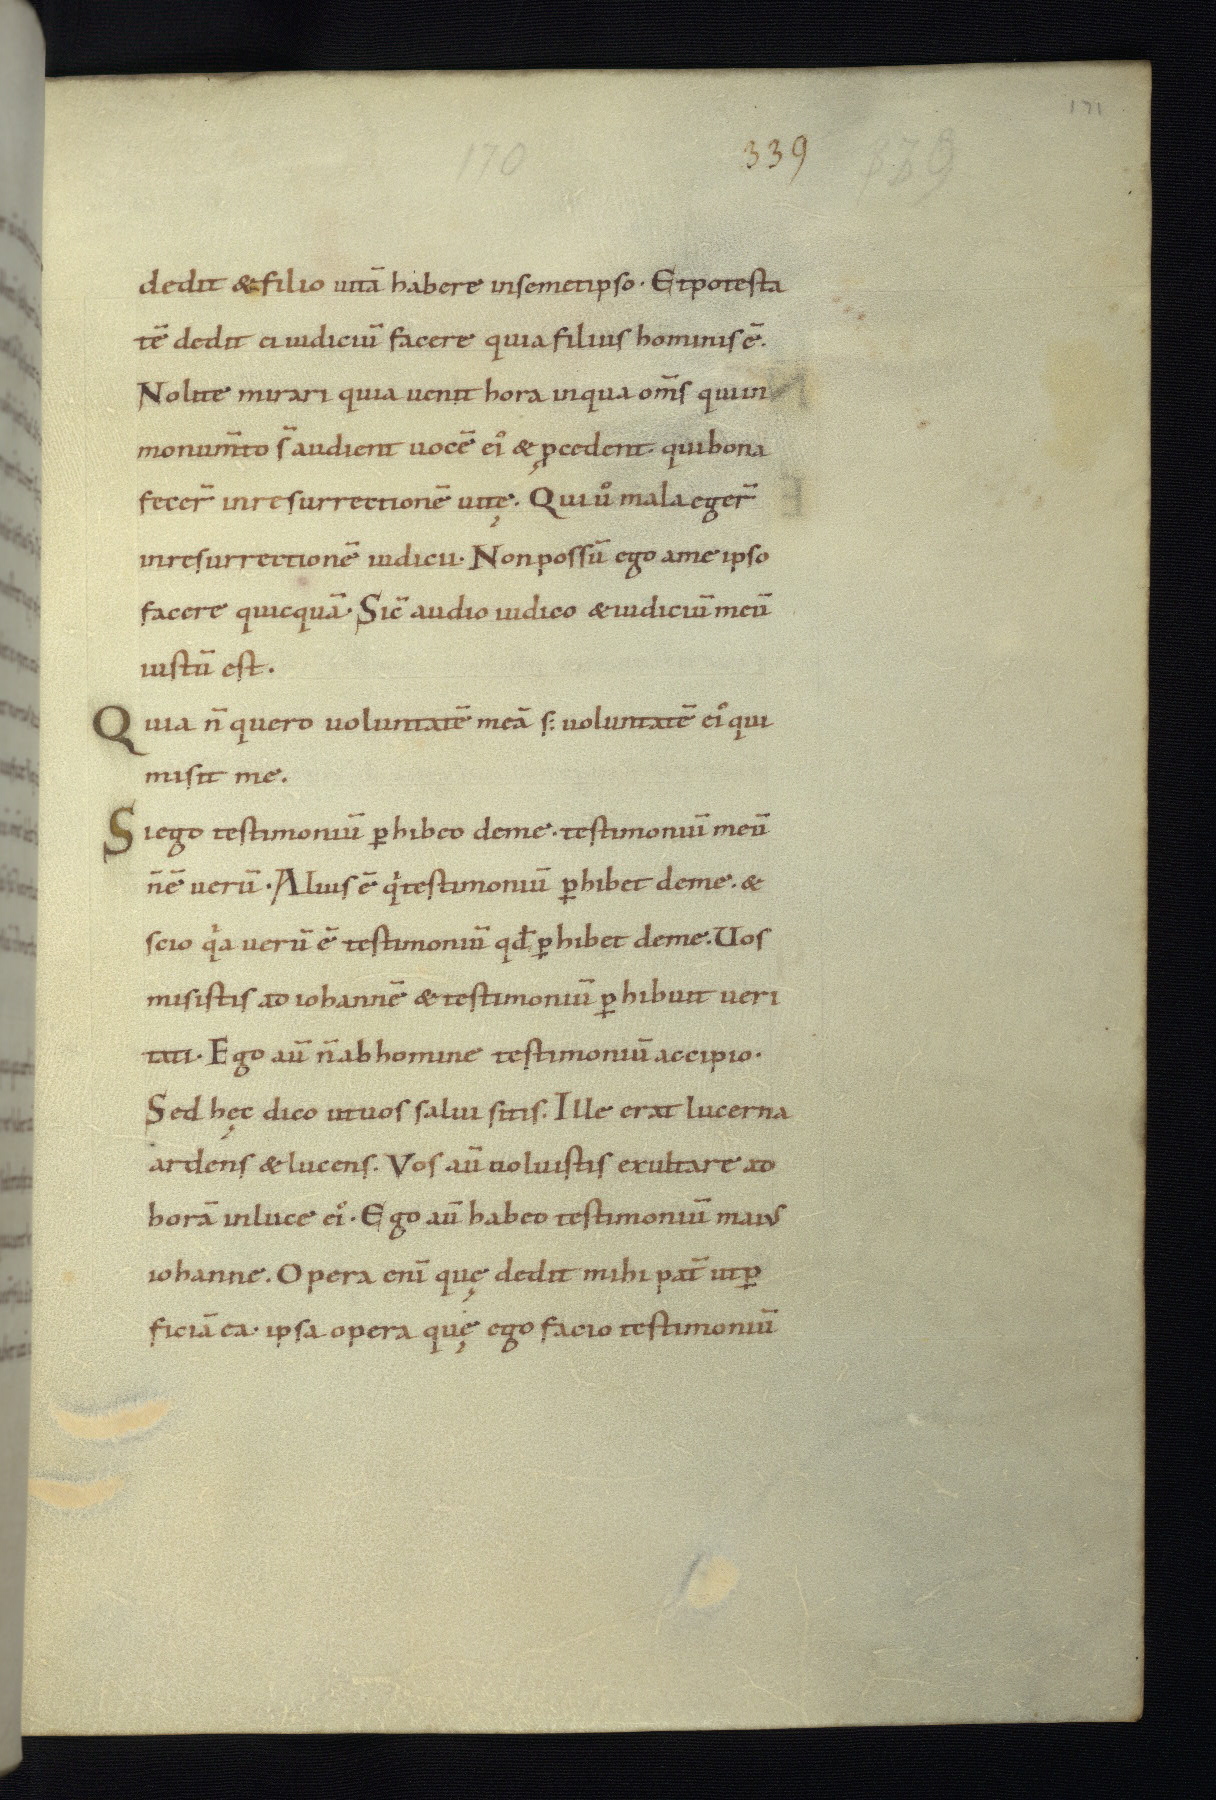 171
170 339
dedit & filio uitā habere insemetipso. Etpotesta
tē dedit ei iudiciū facere quia filius hominis ē.
Nolite mirari quia uenit hora inqua om̄s quiin
monum̄to s̄ audient uocē ei᷒ & p̱cedent. quibona
fecer̄ inresurrectionē uitę. Qui ů mala eger̄
inresurrectionē iudicii. Non possū ego ame ipso
facere quicquā. Sic̄ audio iudico & iudiciū meū
iustū est.
Quia n̄ quero uoluntatē meā s; uoluntatē ei᷒ qui
misit me.
Siego testimoniū ꝑhibeo deme. testimoniū meū
n̄ ē verū. Alius ē qͥ testimoniū ꝑhibet deme. &
scio qͥa uerū ē testimoniū qđ ꝑhibet deme. Uos
misistis ad iohannē & testimoniū ꝑhibuit ueri
tati. Ego aū n̄ abhomine testimoniū accipio.
Sed hęc dico utuos salui sitis. Ille erat lucerna
ardens & lucens. Vos aū uoluistis exultare ad
horā inluce ei᷒. Ego aū habeo testimoniū maius
iohanne. Opera enī quę dedit mihi pat̄ utꝑ
ficiā ea. ipsa opera quę ego facio testimoniū